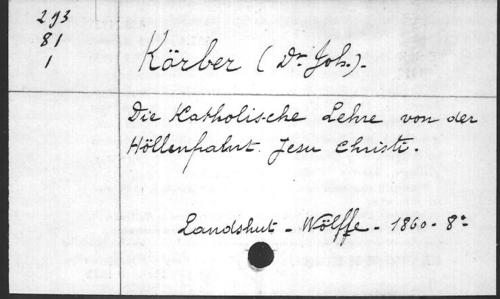 293
81
1
Körber (Dr. Joh.).
Die Katholische Lehre von der
Höllenfahrt Jesu Christi.
Landshut - Wölffe - 1860 - 8°